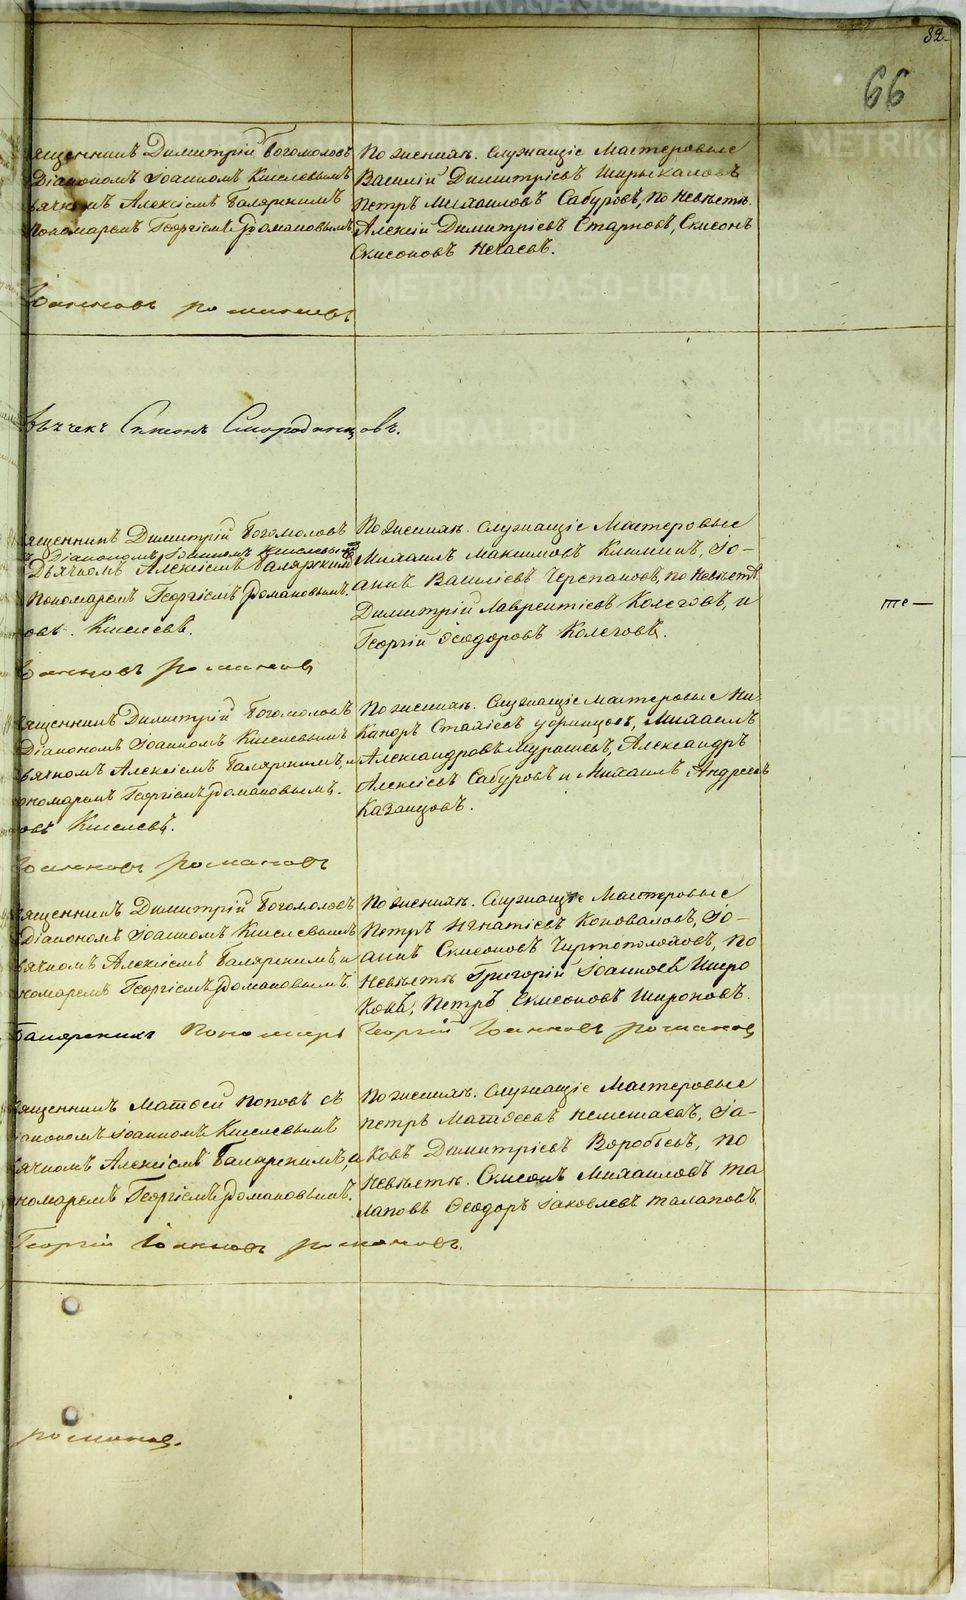 82
66
ященникъ Димитрій Богомоловъ
Діакономъ Іоанномъ Киселевымъ
ячкомъ Алексіемъ Баляркимъ
Пономаремъ Георгіемъ Романовымъ
По женихѣ. Служащіе Мастеровые
Василій Димитріевъ Ширыкаловъ
Петръ Михаиловъ Сабуровъ, по Невѣстѣ.
Алексій Димитріевъ Старковъ, Симеонъ
Симеоновъ Нечаевъ.
Іоанновъ Романовъ
Симеонъ Смородинцовъ.
ященникъ Димитрій Богомоловъ
Діакономъ Іоанномъ Киселевымъ
Дьячкомъ Алексіемъ Баляркимъ
Пономаремъ Георгіемъ Романовымъ.
овъ. Киселевъ.
По женихѣ. Служащіе Мастеровые
Михаилъ Максимовъ Климинъ, Іо-
аннъ Василіевъ Черепановъ, по Невѣстѣ
Димитрій Лаврентіевъ Колеговъ, и
Георгій Ѳеодоровъ Колеговъ.
Іоанновъ Романовъ
ященникъ Димитрій Богомоловъ
Діакономъ Іоанномъ Киселевымъ
ячкомъ Алексіемъ Баляркимъ, и
ономаремъ Георгіемъ Романовымъ.
овъ Киселевъ.
По женихѣ. Служащіе Мастеровые Ни-
каноръ Стахіевъ Уфинцовъ, Михаилъ
Александровъ Мурашевъ, Александръ
Алексіевъ Сабуровъ и Михаилъ Андреевъ
Казанцовъ.
Іоанновъ Романовъ
ященникъ Димитрій Богомоловъ
Діакономъ Іоанномъ Киселевымъ
ячкомъ Алексіемъ Баляркимъ, и
номаремъ Георгіемъ Романовымъ.
По женихѣ. Служащіе Мастеровые
Петръ Игнатіевъ Коноваловъ, Іо-
аннъ Симеоновъ Чертополоховъ, по
Невѣстѣ Григорій Іоанновъ Широ
ковъ, Петръ Симеоновъ Широковъ.
Пономарь Георгій Іоанновъ Романовъ
ященникъ Матѳей Поповъ съ
іакономъ Іоанномъ Киселевымъ
ячкомъ Алексіемъ Баляркимъ, и
номаремъ Георгіемъ Романовымъ.
По женихѣ. Служащіе Мастеровые
Петръ Матѳеевъ Немешаевъ, Іа-
ковъ Димитріевъ Воробьевъ, по
Невѣстѣ. Симеонъ Михаиловъ Та
лаповъ Ѳеодоръ Іаковлевъ Талаповъ.
Георгій Іоанновъ Романовъ.
Романовъ.
METRIKI.GASO-URAL.RU